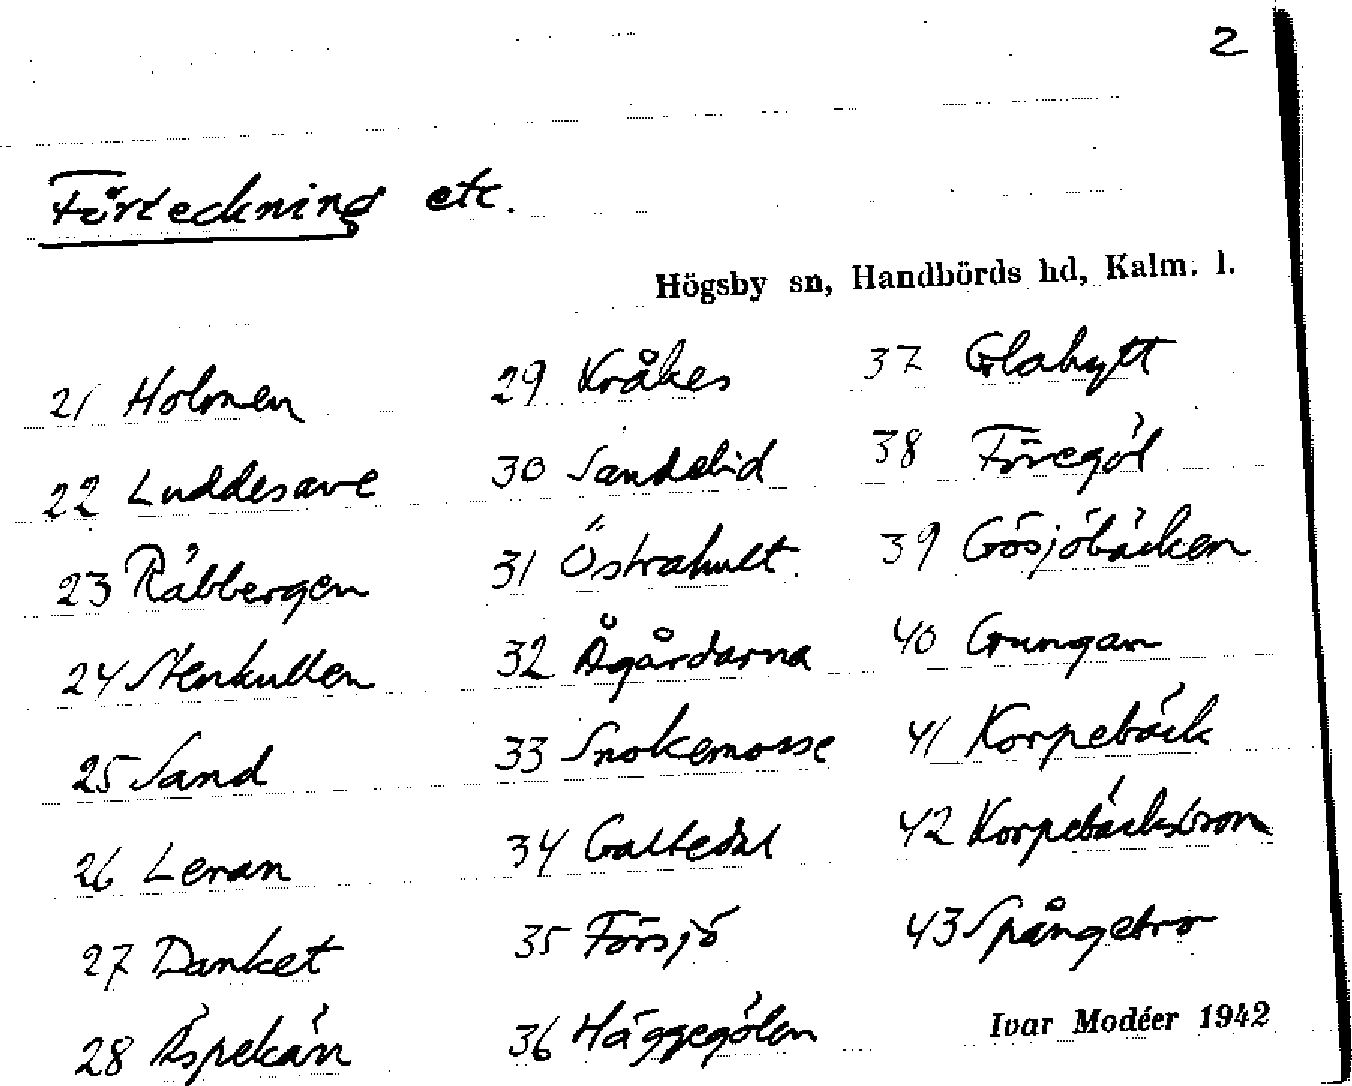 2
Förteckning etc.
Högsby sn, Handbörds hd, Kalm. l.
21 Holmen
22 Luddesave
23 Råbbergen
24 Stenkullen
25 Sand
26 Leran
27 Danket
28 Äspekärr
29 Kråkes
30 Sandslid
31 Östrahult
32 Ågårdarna
33 Snokemosse
34 Galtedal
35 Försjö
36 Häggegölen
37 Glahytt
38 Föregöl
39 Gösjöbäcken
40 Grungan
41 Korpebäck
42 Korpebäcksbron
43 Spångebro
Ivar Modéer 1942